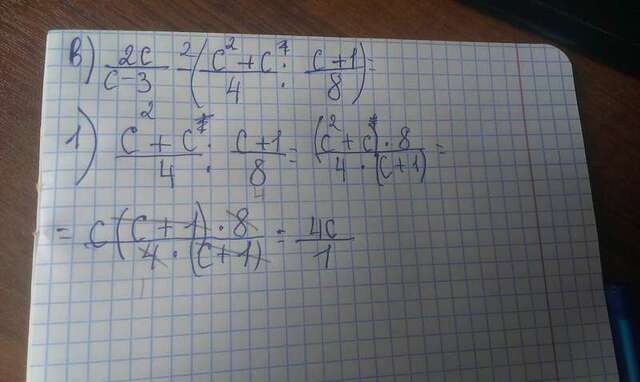 в) 2c/(c-3) - (c² + c/4 : c+1/8) =
1) c² + c/4 : c+1/8 = (c² + c) · 8/4 · (c+1) =
= c(c+1) · 8/4 · (c+1) = 4c/1